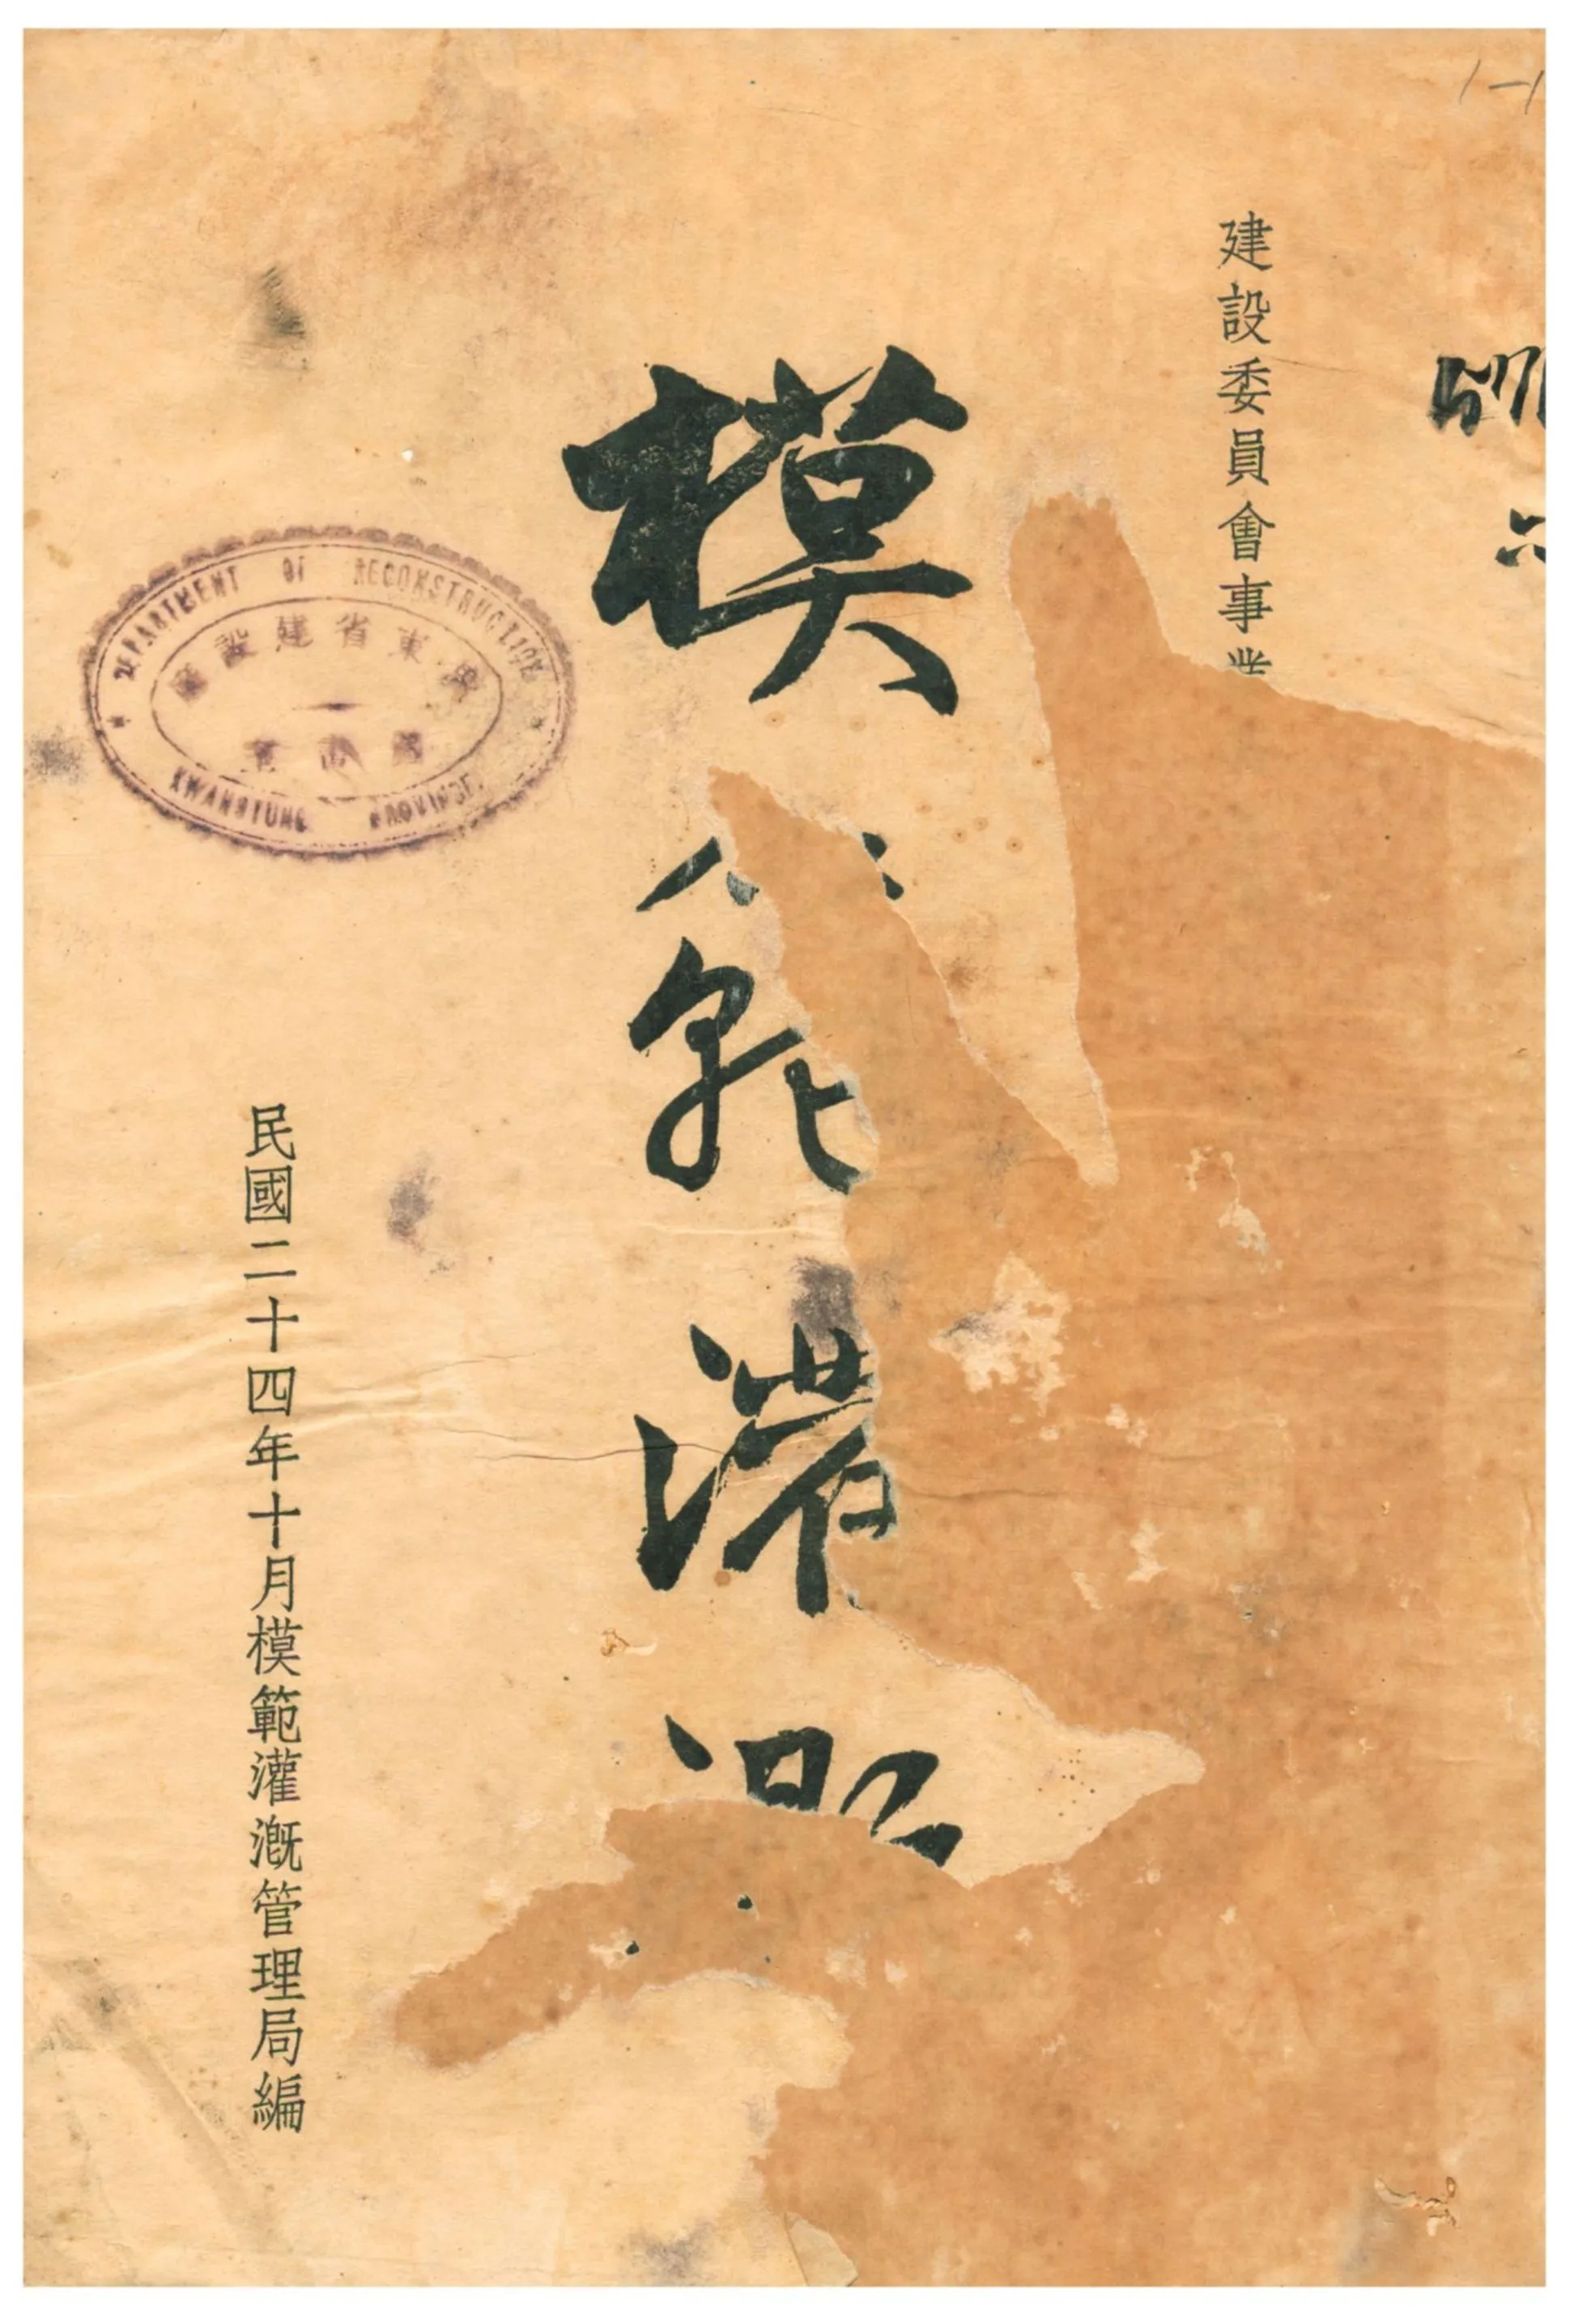 1-1
建設委員會事業
模範灌溉
DEPARTMENT OF RECONSTRUCTION
廣東省建設廳
圖書室
KWANGTUNG PROVINCE
民國二十四年十月模範灌漑管理局編